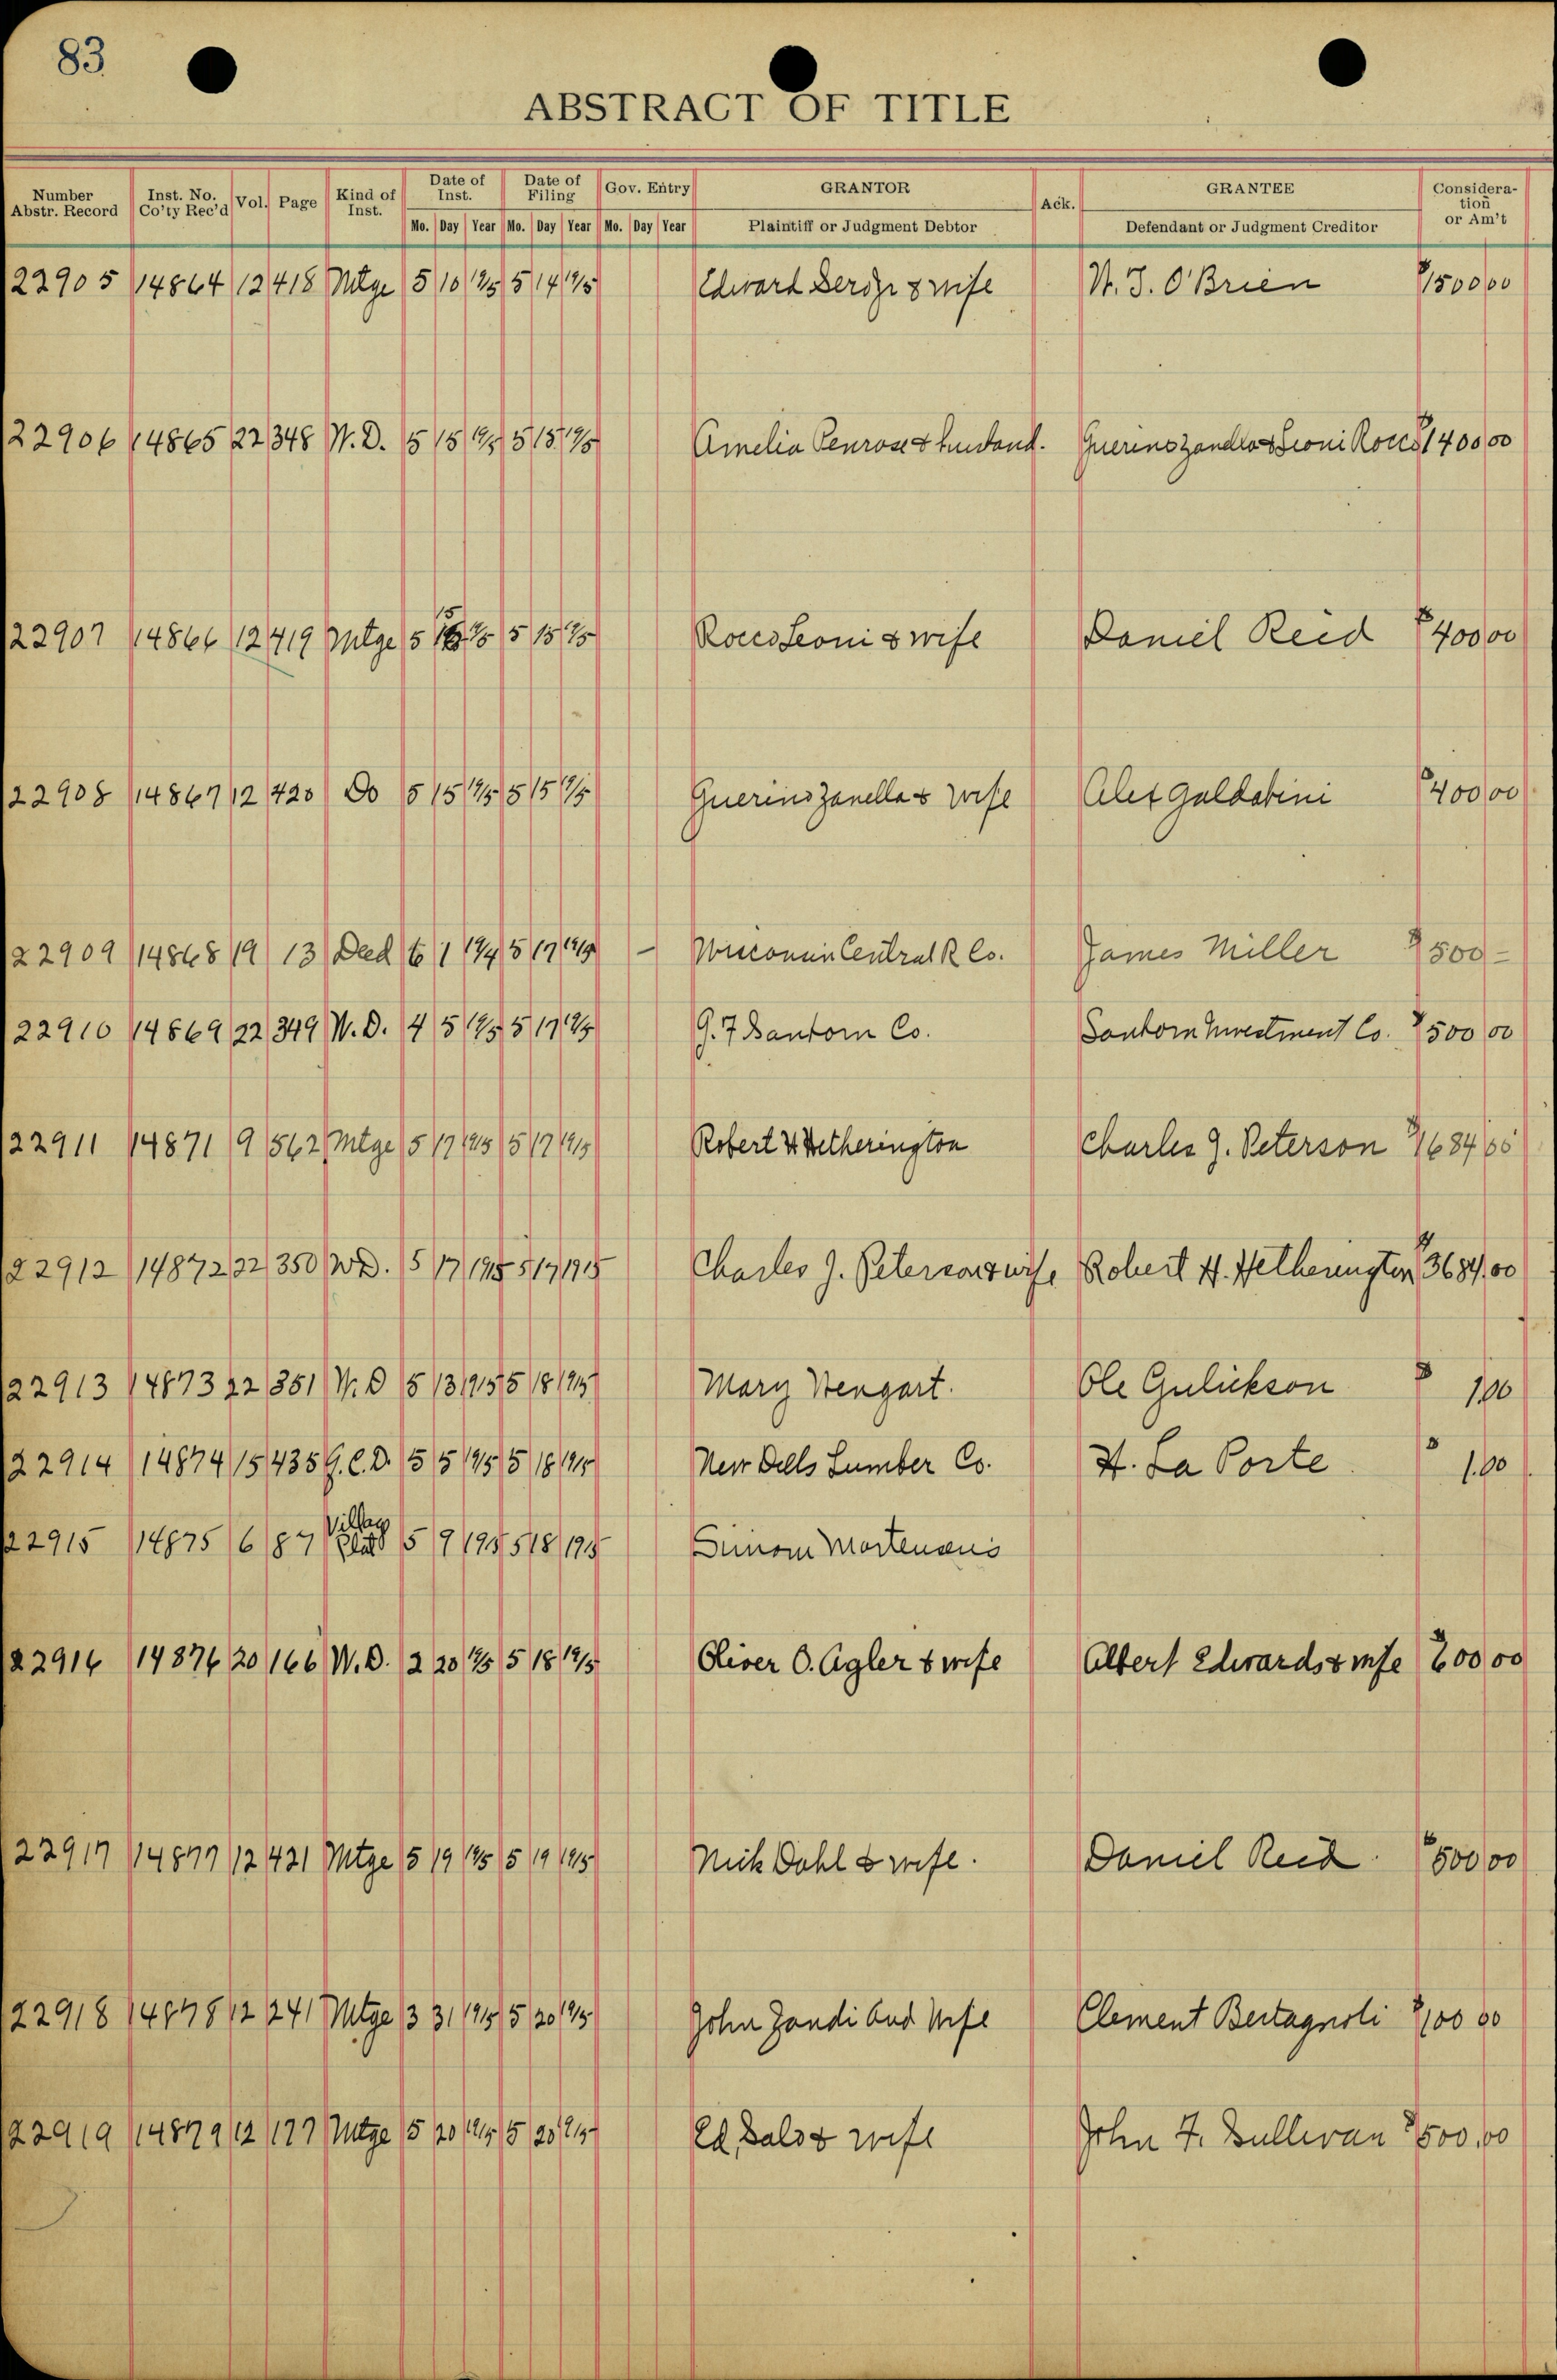 83
ABSTRACT OF TITLE
Number Abstr. Record Inst. No. Co'ty Rec'd Vol. Page Kind of Inst. Date of Inst. Date of Filing Gov. Entry GRANTOR Ack. GRANTEE Consideration or Am't
Mo. Day Year Mo. Day Year Mo. Day Year Plaintiff or Judgment Debtor Defendant or Judgment Creditor
22905 14864 12 418 Mtge 5 10 1915 5 14 1915 Edward & wife W. J. O'Brien $1500 00
22906 14865 22 348 W.D. 5 15 1915 5 15 1915 Amelia Penrose & husband. Guerino Zanella & Leoni Rocco $1400 00
22907 14866 12 419 Mtge 5 15 1915 5 15 1915 Rocco Leoni & wife Daniel Reid $400 00
22908 14867 12 420 Do 5 15 1915 5 15 1915 Guerino Zanella & wife Alex Galdabini $400 00
22909 14868 19 13 Deed 6 1 1914 5 17 1915 - Wisconsin Central R Co. James Miller $500 -
22910 14869 22 349 W.D. 4 5 1915 5 17 1915 G. F. Sanborn Co. Sanborn Investment Co. $500 00
22911 14871 9 562 Mtge 5 17 1915 5 17 1915 Robert H Hetherington Charles J. Peterson $1684 00
22912 14872 22 350 W.D. 5 17 1915 5 17 1915 Charles J. Peterson & wife Robert H. Hetherington $3684.00
22913 14873 22 351 W.D 5 13 1915 5 18 1915 Mary Wengart. Ole Gulickson $ 1.00
22914 14874 15 435 G.C.D. 5 5 1915 5 18 1915 New Dells Lumber Co. H. La Porte $ 1.00
22915 14875 6 87 Village Plat 5 9 1915 5 18 1915
22916 14876 20 166 W.D. 2 20 1915 5 18 1915 Oliver O. Agler & wife Albert Edwards & wife $600 00
22917 14877 12 421 Mtge 5 19 1915 5 19 1915 Nick Dahl & wife. Daniel Reid. $500 00
22918 14878 12 241 Mtge 3 31 1915 5 20 1915 John Zandi and Wife Clement Bertagnoli $100 00
22919 14879 12 177 Mtge 5 20 1915 5 20 1915 Ed. Salo & wife John F. Sullivan $500.00